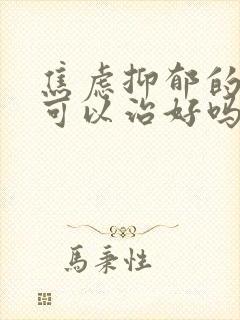 焦虑抑郁的
可以治好吗
馬秉性